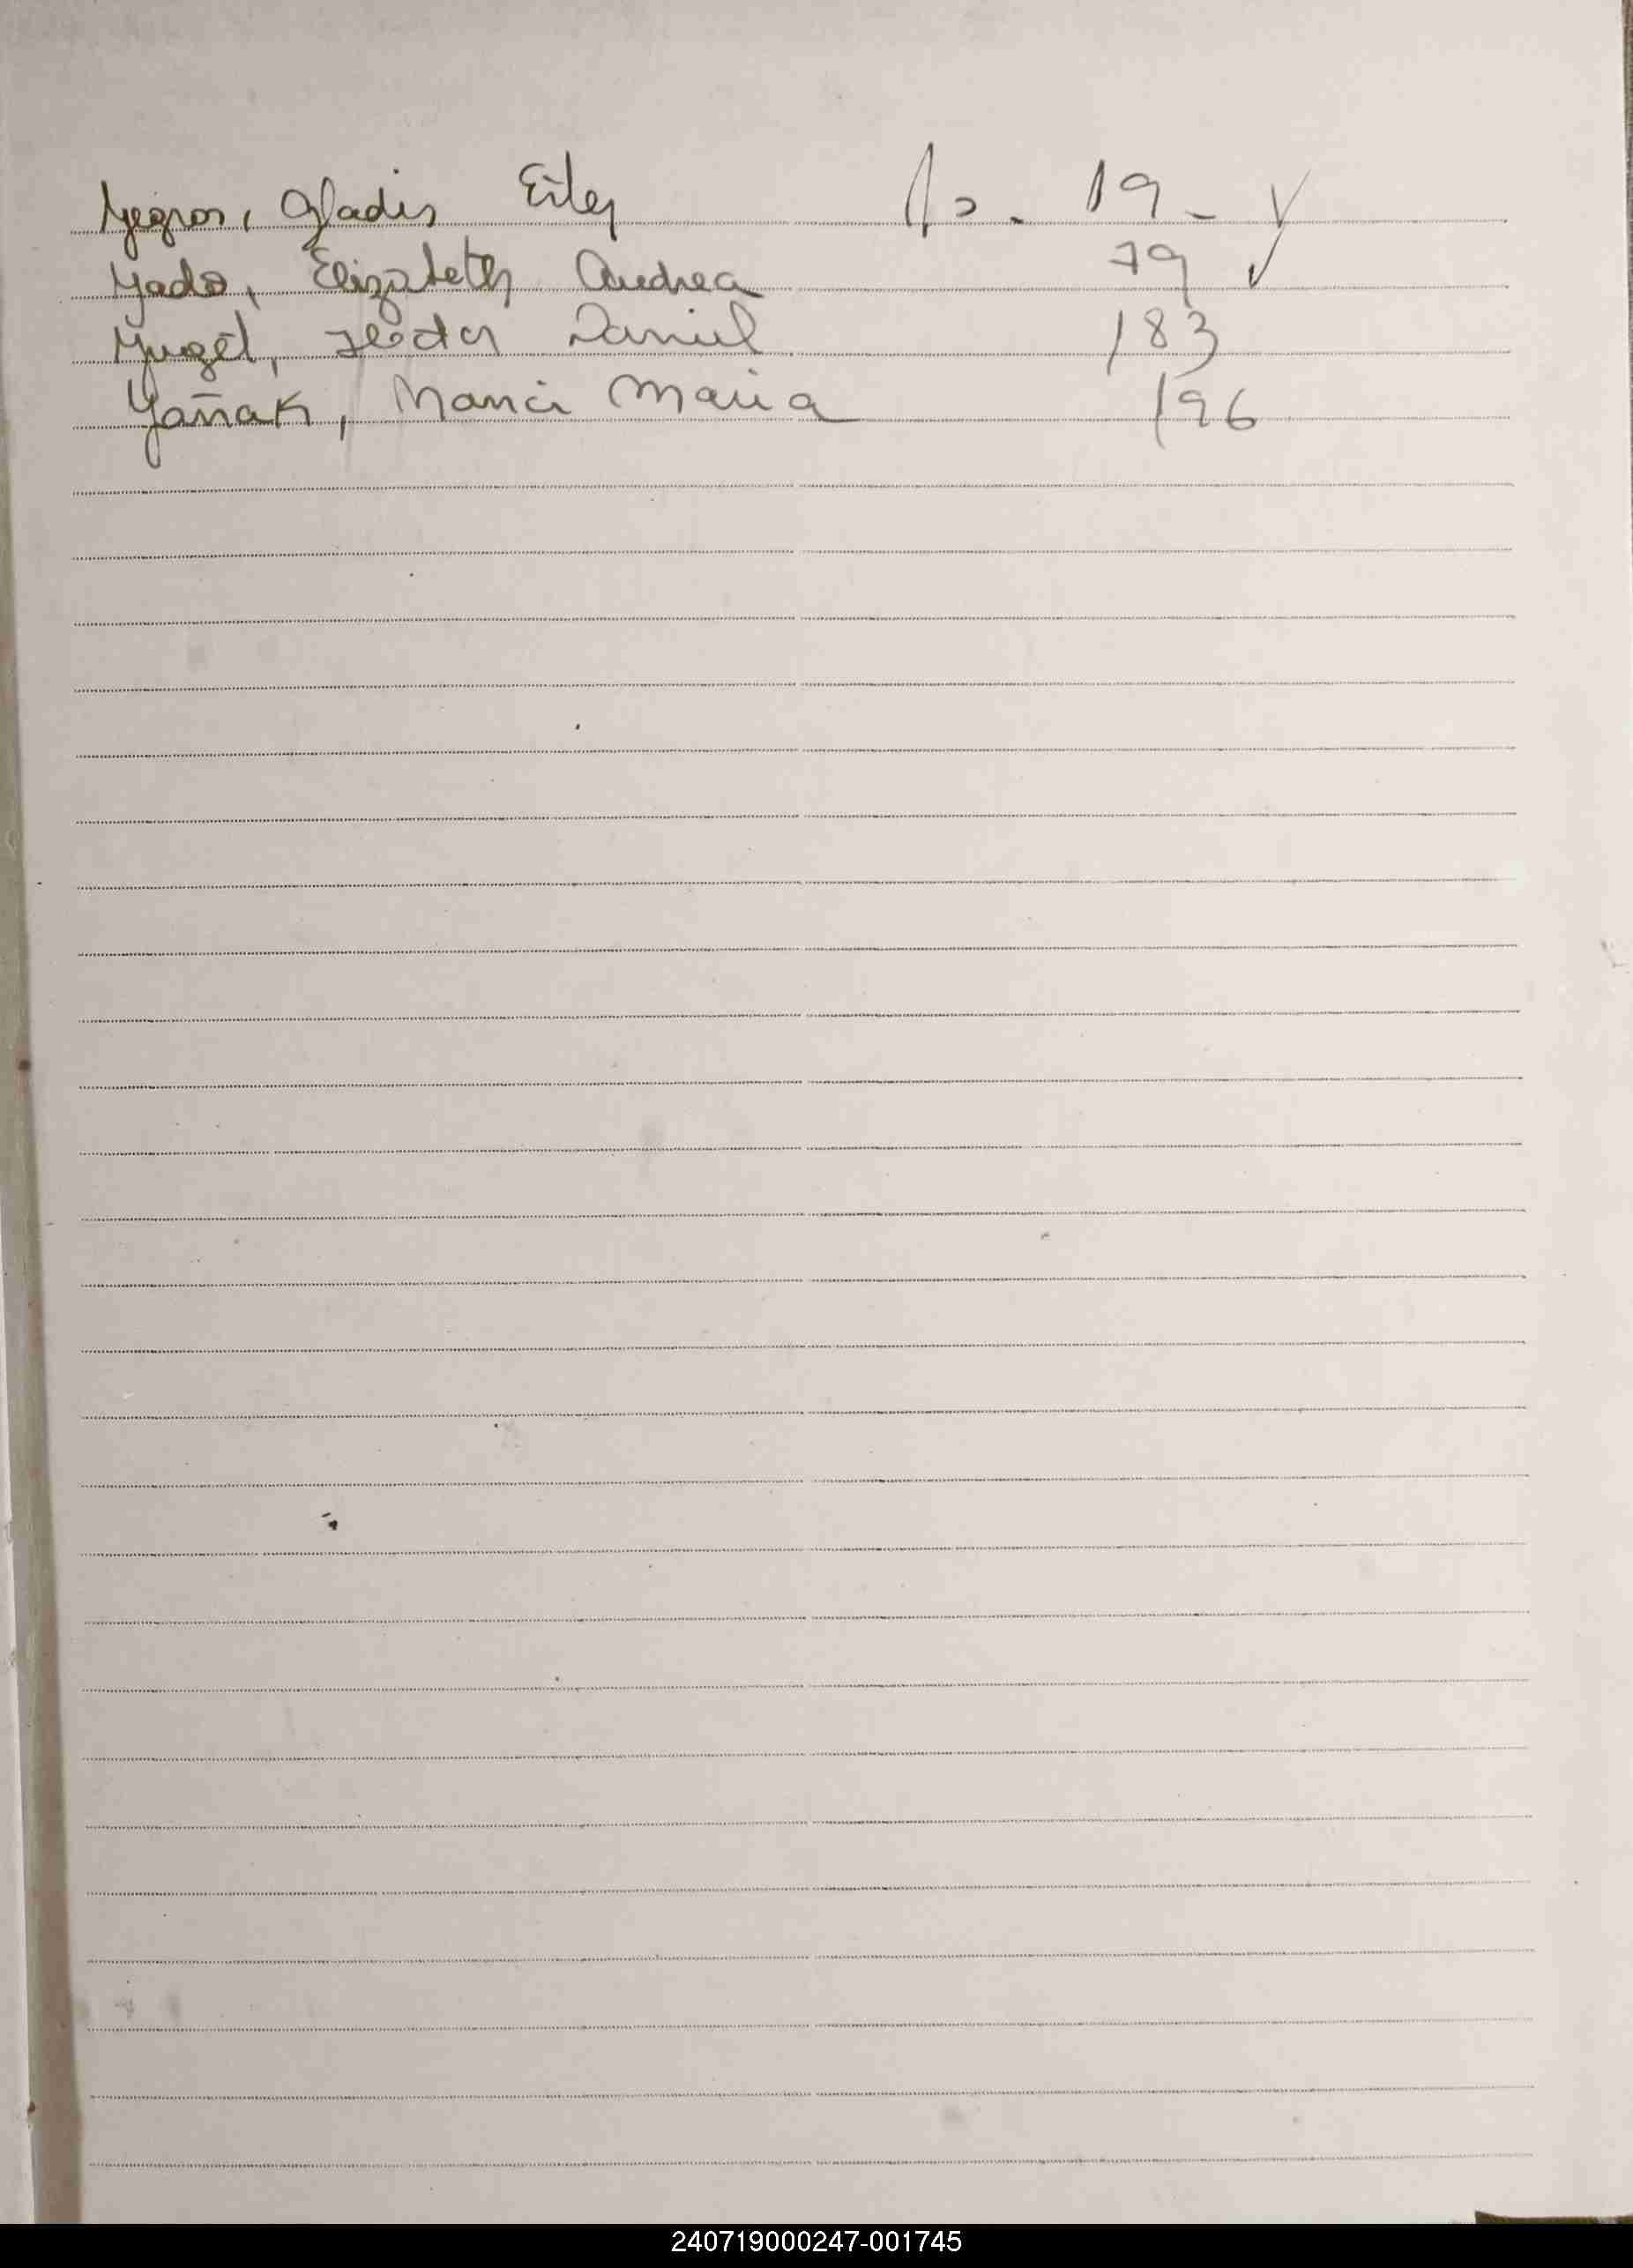 Yegros, Gladis Eiley fs. 19 - ✓
Yado, Elizabeth Andrea 79 ✓
Yugel, Hector Daniel 183
Yañak, Nanci Maria 196
240719000247-001745